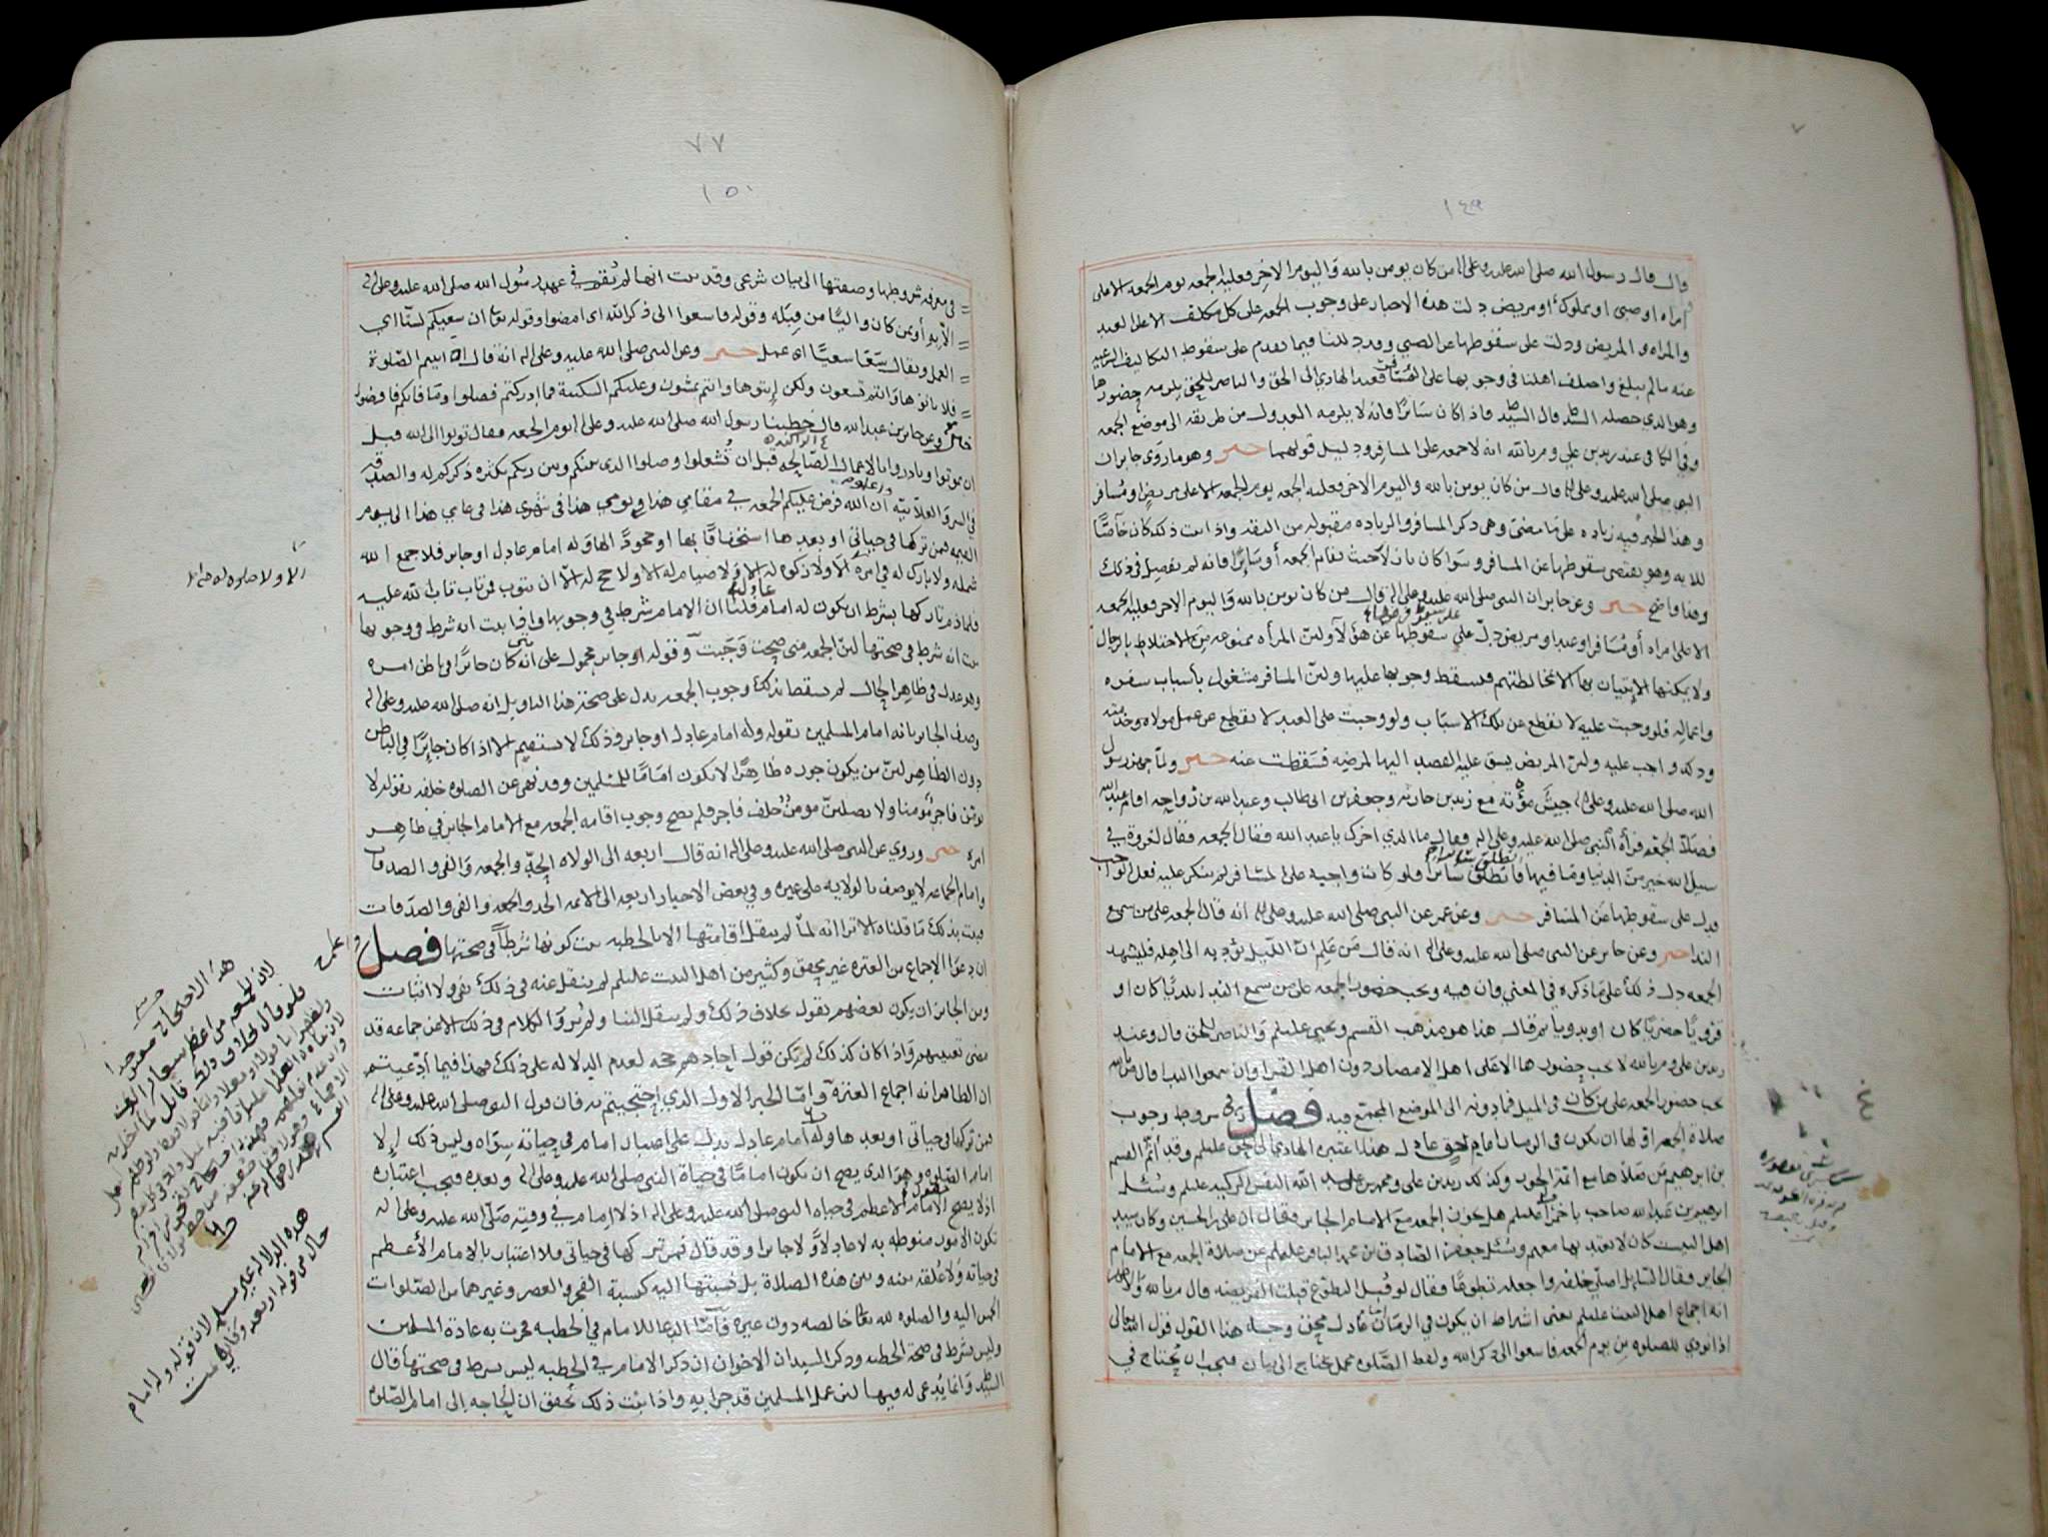 ١٤٩
قال قال رسول الله صلى الله عليه وعلى اله من كان يومن بالله واليوم الاخر فعليه الجمعه يوم الجمعه الا على
امراه او صبي او مملوك او مريض دلت هذه الاخبار على وجوب الجمعه على كل مكلف الا على العبد
والمراه والمريض ودلت على سقوطها عن الصبي وقد دللنا فيما تقدم على سقوط التكاليف الشرعيه
عنه ما لم يبلغ واختلف اهلنا في وجوبها على المسافر فعند الهادي الى الحق والناصر للحق يلزمه حضورها
وهو الذي حصله السيد ط قال السيد ط فاذا كان سائرا فانه لا يلزمه العدول من طريقه الى موضع الجمعه
وفي الكافي عند زيد بن علي وم بالله انه لا جمعه على المسافر ودليل قولهما خبر وهو ما روى جابر ان
النبي صلى الله عليه وعلى اله قال من كان يومن بالله واليوم الاخر فعليه الجمعه يوم الجمعه الا على مريض او مسافر
وهذا الخبر فيه زياده على ما مضى وهي ذكر المسافر والزياده مقبوله من الثقه واذا ثبت ذلك كان خاصا
للايه وهو يقتضي سقوطها عن المسافر وسوا كان نازلا حيث تقام الجمعه أو سائرا فانه لم يفصل في ذلك
وهذا واضح خبر وعن جابر ان النبي صلى الله عليه وعلى اله قال من كان يومن بالله واليوم الاخر فعليه الجمعه
الا على امراه أو مسافر او عبد او مريض دل على سقوطها عن هؤلآ ولئن المرأه ممنوعه من الاختلاط بالرجال
ولا يمكنها الإتيان بها الا بمخالطتهم فسقط وجوبها عليها ولئن المسافر مشغول بأسباب سفره
واعماله فلو وجبت عليه لانقطع عن تلك الاسباب ولو وجبت على العبد لانقطع عن عمل مولاه وخدمته
وذلك واجب عليه ولئن المريض يشق عليه القصد اليها لمرضه فسقطت عنه خبر ولما جهز رسول
الله صلى الله عليه وعلى اله جيش مؤته مع زيد بن حارثه وجعفر بن ابي طالب وعبد الله بن رواحه اقام عبد الله
فصلى الجمعه فرآه النبي صلى الله عليه وعلى اله فقال ما الذي اخرك يا عبد الله فقال الجمعه فقال لغدوة في
سبيل الله خير من الدنيا وما فيها فانطلق سائرا فلو كانت واجبه على المسافر لم ينكر عليه فعل الواجب
فدل على سقوطها عن المسافر خبر وعن عمر عن النبي صلى الله عليه وعلى اله انه قال الجمعه على من سمع
الندا خبر وعن جابر عن النبي صلى الله عليه وعلى اله انه قال من علم ان الليل يؤديه الى اهله فليشهد
الجمعه دل ذلك على ما ذكره في المعنى وان فيه ويجب حضور الجمعه على من سمع الندا بلديا كان او
قرويا حضريا كان او بدويا ثم قال هذا هو مذهب القسم ويحيى عليلم والناصر للحق قال وعند
زيد بن علي وم بالله لا يجب حضورها الا على اهل الامصار دون اهل القرى وان سمعوا الندا قال
يجب حضور الجمعه على من كان في الميل فما دونه الى الموضع المجتمع فيه فصل في شروط وجوب
صلاة الجمعه اولها ان يكون في الزمان امام حق عادل هذا اعتبره الهادي الى الحق عليلم وقد أتم القسم
بن ابرهيم من صلاها مع ائمة الجور وكذلك زيد بن علي ومحمد بن عبد الله النفس الزكيه عليلم وسئل
ابرهيم بن عبد الله صاحب باخمرا عليلم هل تجوز الجمعه مع الامام الجائر فقال ان علي بن الحسين وكان سيد
اهل البيت كان لا يعتد بها معهم وسئل جعفر الصادق بن محمد الباقر عليلم عن صلاة الجمعه مع الامام
الجائر فقال للسائل اصلي خلفه واجعله تطوعا فقال لو قبل التطوع قبلت الفريضه قال م بالله
انه اجماع اهل البيت عليلم يعني اشتراط ان يكون في الزمان امام عادل محق وجه هذا القول قول الله تعالى
اذا نودي للصلوه من يوم الجمعه فاسعوا الى ذكر الله ولفظ الصلوه مجمل يحتاج الى بيان فيجب ان يحتاج في
٧٧
١٥٠
في معرفه شروطها وصفتها الى بيان شرعي وقد ثبت انها لم تقم في عهد رسول الله صلى الله عليه وعلى اله
الا به أو بمن كان واليا من قبله وقوله فاسعوا الى ذكر الله اي امضوا وقوله تعالى ان سعيكم لشتى اي
العمل ويقال سعى سعيا اي عمل خبر وعن النبي صلى الله عليه وعلى اله انه قال اذا اتيتم الصلوة
فلا تاتوها وانتم تسعون ولكن إيتوها وانتم تمشون وعليكم السكينة فما ادركتم فصلوا وما فاتكم فاقضوا
خبر وعن جابر بن عبد الله قال خطبنا رسول الله صلى الله عليه وعلى اله يوم الجمعه فقال توبوا الى الله قبل
ان تموتوا وبادروا بالاعمال الصالحه قبل ان تشغلوا وصلوا الذي بينكم وبين ربكم بكثره ذكركم له والصدقه
في السر والعلانيه واعلموا ان الله فرض عليكم الجمعه في مقامي هذا ويومي هذا في شهري هذا في عامي هذا الى يوم
القيمه فمن تركها في حياتي او بعدها استخفافا بها او جحودا لها وله امام عادل او جائر فلا جمع الله
شمله ولا بارك له في امره الا ولا زكوه له الا ولا صيام له الا ولا حج له الا ان يتوب فمن تاب تاب الله عليه
فلما ذم تاركها بشرط ان يكون له امام قلنا ان الامام شرط في وجوبها واذا ثبت انه شرط في وجوبها
ثبت انه شرط في صحتها لئن الجمعه متى صحت وجبت وقوله او جائر محمول على انه متى كان جائرا في باطن امره
وهو عدل في ظاهر الحال لم يسقط بذلك وجوب الجمعه يدل على صحة هذا التاويل انه صلى الله عليه وعلى اله
وصف الجائر بانه امام المسلمين بقوله وله امام عادل او جائر وذلك لا يستقيم الا اذا كان جائرا في الباطن
دون الظاهر لئن من يكون جوره ظاهرا لا يكون اماما للمسلمين وقد نهى عن الصلاه خلفه بقوله لا
يؤمن فاجر مؤمنا ولا يصلين مومن خلف فاجر فلم يصح وجوب اقامه الجمعه مع الامام الجائر في ظاهر
امره خبر وروي عن النبي صلى الله عليه وعلى اله انه قال اربعه الى الولاه الحد والجمعه والفي والصدقات
وامام الجماعه لا يوصف بالولايه على غيره وفي بعض الاخبار اربعه الى الائمه الحد والجمعه والفي والصدقات
فثبت بذلك ما قلناه الا ترا انه لما لم ينقل اقامتها الا بالخطبه ثبت كونها شرطا في صحتها فصل واعلم
ان دعوا الاجماع من العتره غير محقق وكثير من اهل البيت عليلم لم ينقل عنه في ذلك نفي ولا اثبات
ومن الجائز ان يكون بعضهم يقول بخلاف ذلك ولم ينقل الينا ولم يرو الكلام في ذلك الا عن جماعه قد
مضى تعيينهم واذا كان كذلك لم يكن قول احادهم حجه لعدم الدلاله على ذلك فهذا فيما أدعيتم
ان الظاهر انه اجماع العترة وامّا الخبر الاول الذي احتجيتم به فان قول النبي صلى الله عليه وعلى اله
فمن تركها في حياتي او بعدها وله امام عادل يدل على اعتبار امام في حياته سواه وليس ذلك إلا
امام الصلوه وهو الذي يصح ان يكون اماما في حياة النبي صلى الله عليه وعلى اله وبعده فيجب اعتباره
اذ لا يصح الامام الأعظم في حياه النبي صلى الله عليه وعلى اله اذ لا إمام في وقته صلى الله عليه وعلى اله
تكون الامور منوطه به لا عادلا ولا جائرا وقد قال فمن تركها في حياتي فلا اعتبار بالامام الأعظم
في حياته ولا علقه بينه وبين هذه الصلاة بل نسبتها اليه كنسبة الفجر والعصر وغيرهما من الصلوات
الخمس اليه والصلوه لله تعالى خالصه دون غيره فأما الدعا للامام في الخطبه فجرت به عادة المسلمين
وليس بشرط في صحة الخطبه وذكر السيدان الاخوان ان ذكر الامام في الخطبه ليس بشرط في صحتها قال
السيد ط وانما يدعى له فيها لئن عمل المسلمين قد جرا به واذا ثبت ذلك تحقق ان الحاجه إلى امام الصلوه
الا ولا صلوه له
هذا الاحتجاج ضعيف جدا
لان الجمعه من اعظم شعائر
هذه الدلاله غير مسلمه لان قوله وله امام
حال من قوله او بعد وفاتي